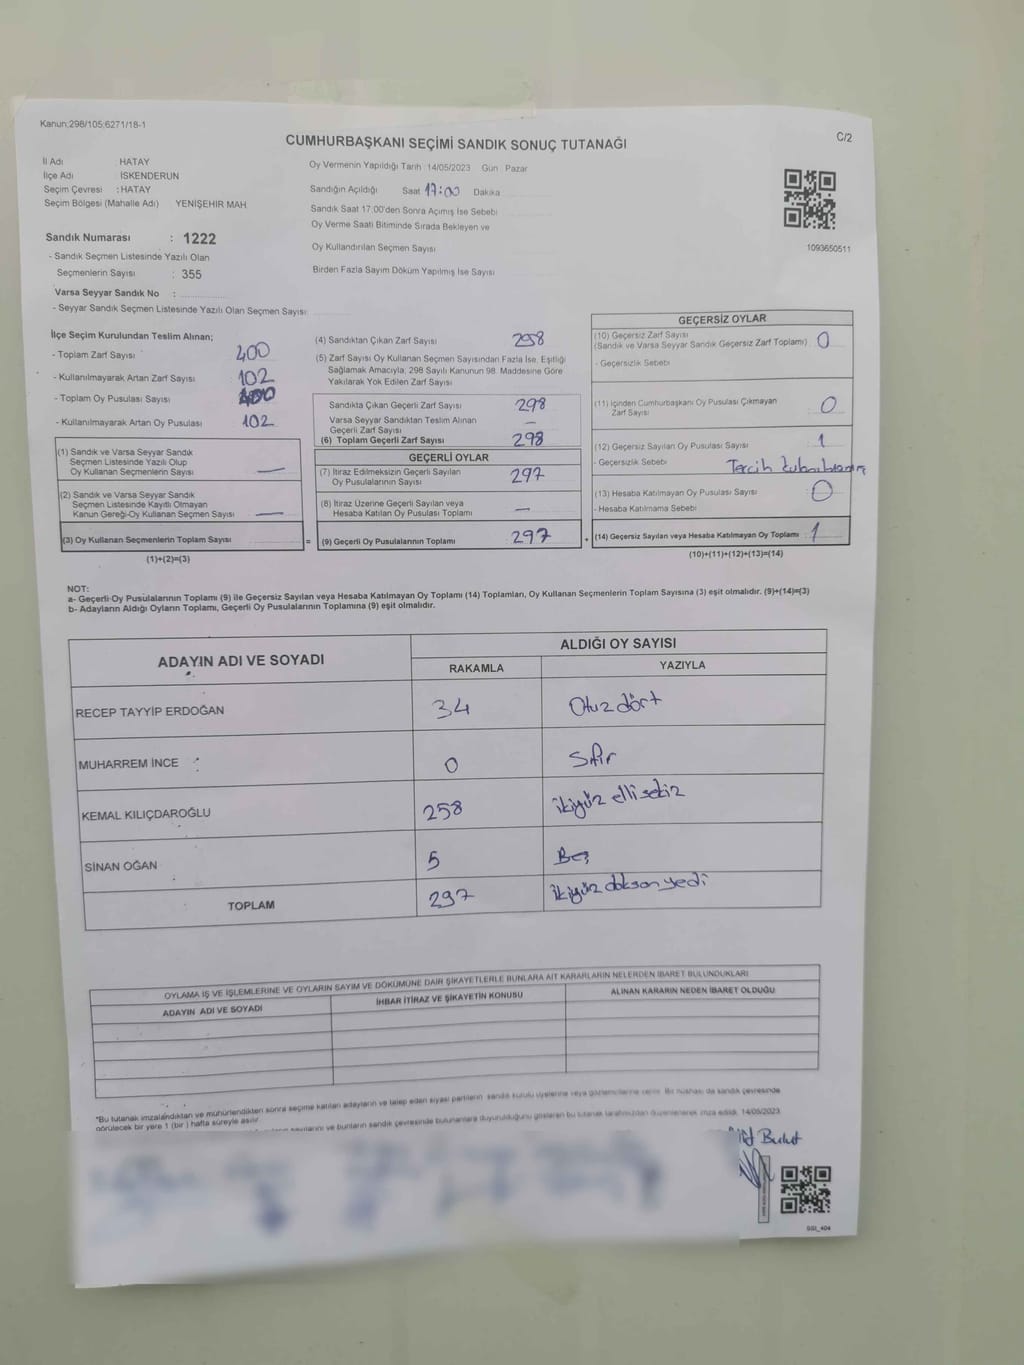 Kanun:298/105;6271/18-1
C/2
CUMHURBAŞKANI SEÇİMİ SANDIK SONUÇ TUTANAĞI
İl Adı HATAY
İlçe Adı İSKENDERUN
Seçim Çevresi : HATAY
Seçim Bölgesi (Mahalle Adı) YENİŞEHİR MAH.
Sandık Numarası : 1222
- Sandık Seçmen Listesinde Yazılı Olan
Seçmenlerin Sayısı : 355
Varsa Seyyar Sandık No :
- Seyyar Sandık Seçmen Listesinde Yazılı Olan Seçmen Sayısı
Oy Vermenin Yapıldığı Tarih :14/05/2023 Gün : Pazar
Sandığın Açıldığı Saat 17:00 Dakika
Sandık Saat 17:00'den Sonra Açımış İse Sebebi
Oy Verme Saati Bitiminde Sırada Bekleyen ve
Oy Kullandırılan Seçmen Sayısı
Birden Fazla Sayım Döküm Yapılmış İse Sayısı
1093650511
İlçe Seçim Kurulundan Teslim Alınan;
- Toplam Zarf Sayısı 400
- Kullanılmayarak Artan Zarf Sayısı 102
- Toplam Oy Pusulası Sayısı 400
- Kullanılmayarak Artan Oy Pusulası 102
(1) Sandık ve Varsa Seyyar Sandık
Seçmen Listesinde Yazılı Olup
Oy Kullanan Seçmenlerin Sayısı —
(2) Sandık ve Varsa Seyyar Sandık
Seçmen Listesinde Kayıtlı Olmayan
Kanun Gereği-Oy Kullanan Seçmen Sayısı —
(3) Oy Kullanan Seçmenlerin Toplam Sayısı =
(1)+(2)=(3)
(4) Sandıktan Çıkan Zarf Sayısı 298
(5) Zarf Sayısı Oy Kullanan Seçmen Sayısından Fazla İse, Eşitliği
Sağlamak Amacıyla; 298 Sayılı Kanunun 98. Maddesine Göre
Yakılarak Yok Edilen Zarf Sayısı
Sandıkta Çıkan Geçerli Zarf Sayısı 298
Varsa Seyyar Sandıktan Teslim Alınan
Geçerli Zarf Sayısı —
(6) Toplam Geçerli Zarf Sayısı 298
GEÇERLİ OYLAR
(7) İtiraz Edilmeksizin Geçerli Sayılan
Oy Pusulalarının Sayısı 297
(8) İtiraz Üzerine Geçerli Sayılan veya
Hesaba Katılan Oy Pusulası Toplamı —
(9) Geçerli Oy Pusulalarının Toplamı 297 +
GEÇERSİZ OYLAR
(10) Geçersiz Zarf Sayısı
(Sandık ve Varsa Seyyar Sandık Geçersiz Zarf Toplamı) 0
- Geçersizlik Sebebi
(11) İçinden Cumhurbaşkanı Oy Pusulası Çıkmayan
Zarf Sayısı 0
(12) Geçersiz Sayılan Oy Pusulası Sayısı 1
- Geçersizlik Sebebi Tercih
(13) Hesaba Katılmayan Oy Pusulası Sayısı 0
- Hesaba Katılmama Sebebi
(14) Geçersiz Sayılan veya Hesaba Katılmayan Oy Toplamı 1
(10)+(11)+(12)+(13)=(14)
NOT:
a- Geçerli Oy Pusulalarının Toplamı (9) ile Geçersiz Sayılan veya Hesaba Katılmayan Oy Toplamı (14) Toplamları, Oy Kullanan Seçmenlerin Toplam Sayısına (3) eşit olmalıdır. (9)+(14)=(3)
b- Adayların Aldığı Oyların Toplamı, Geçerli Oy Pusulalarının Toplamına (9) eşit olmalıdır.
ADAYIN ADI VE SOYADI ALDIĞI OY SAYISI
RAKAMLA YAZIYLA
RECEP TAYYİP ERDOĞAN 34 Otuz dört
MUHARREM İNCE 0 Sıfır
KEMAL KILIÇDAROĞLU 258 ikiyüz ellisekiz
SİNAN OĞAN 5 Beş
TOPLAM 297 ikiyüz doksan yedi
OYLAMA İŞ VE İŞLEMLERİNE VE OYLARIN SAYIM VE DÖKÜMÜNE DAİR ŞİKAYETLERLE BUNLARA AİT KARARLARIN NELERDEN İBARET BULUNDUKLARI
ADAYIN ADI VE SOYADI İHBAR İTİRAZ VE ŞİKAYETİN KONUSU ALINAN KARARIN NEDEN İBARET OLDUĞU
*Bu tutanak imzalandıktan ve mühürlendikten sonra seçime katılan adayların ve talep eden siyasi partilerin sandık kurulu üyelerine veya gözlemcilerine verilir. Bir nüshası da sandık çevresinde
görülecek bir yere 1 (bir) hafta süreyle asılır.
ve bunların sandık çevresinde bulunanlara duyurulduğunu gösteren bu tutanak tarafımızdan düzenlenerek imza edildi. 14/05/2023
Bulut
GGI_404